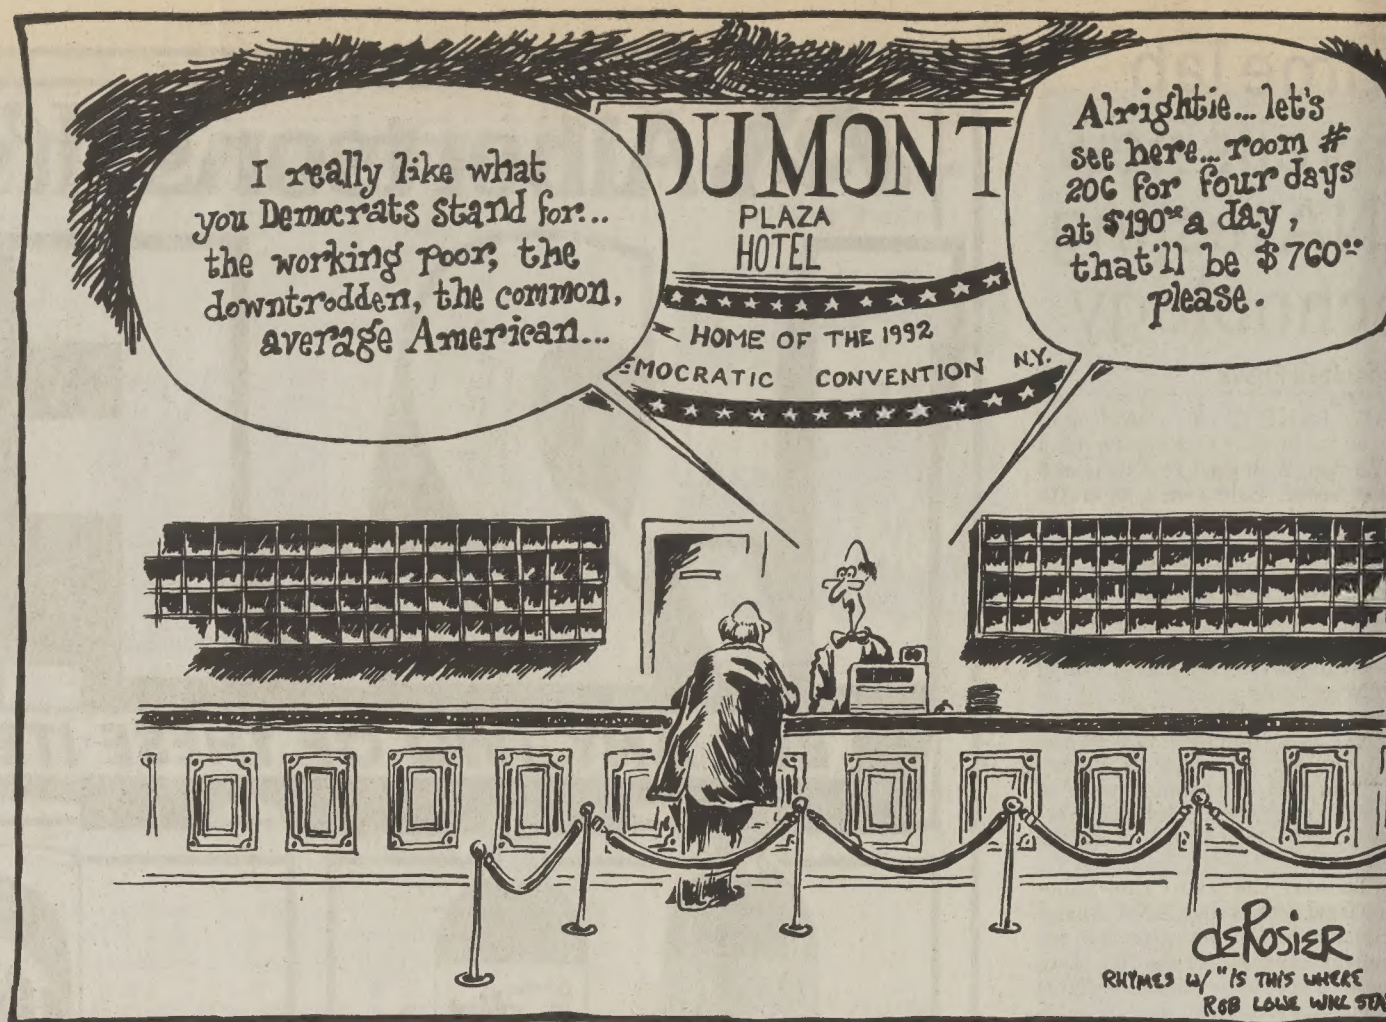 I really like what
you Democrats stand for...
the working poor, the
downtrodden, the common,
average American...
DUMONT
PLAZA
HOTEL
HOME OF THE 1992
EMOCRATIC CONVENTION N.Y.
Alrightie... let's
see here... room #
206 for four days
at $190⁰⁰ a day,
that'll be $760⁰⁰
please.
deRosier
RHYMES W/ "IS THIS WHERE
ROB LOWE WILL STA